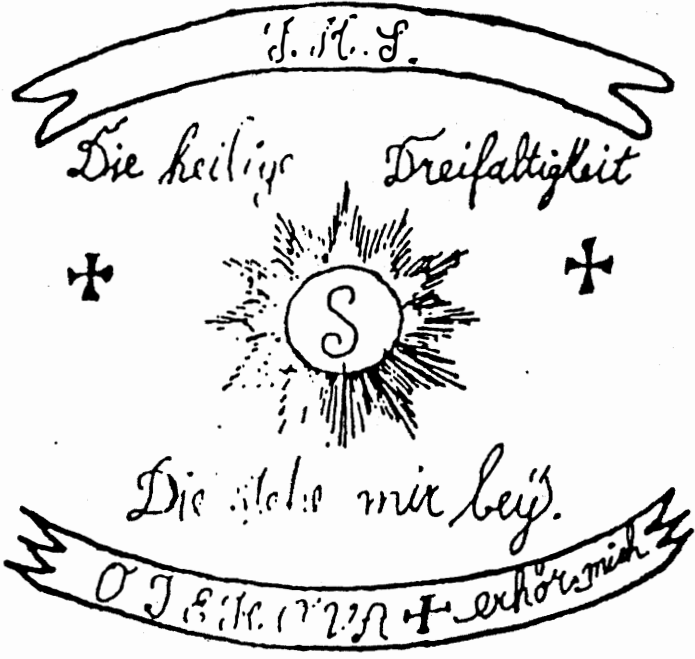 J. H. S.
Die heilige Dreifaltigkeit
S
Die stehe mir beÿ.
erhör mich